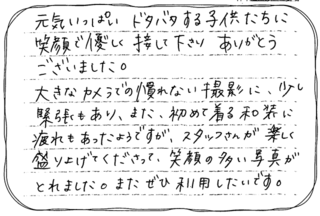 元気いっぱい ドタバタする子供たちに
笑顔で優しく 接して下さり ありがとう
ございました。
大きなカメラでの慣れない撮影に、少し
緊張もあり、また、初めて着る和装に
疲れもあったようですが、スタッフさんが楽しく
盛り上げてくださって、笑顔の多い写真が
とれました。またぜひ利用したいです。